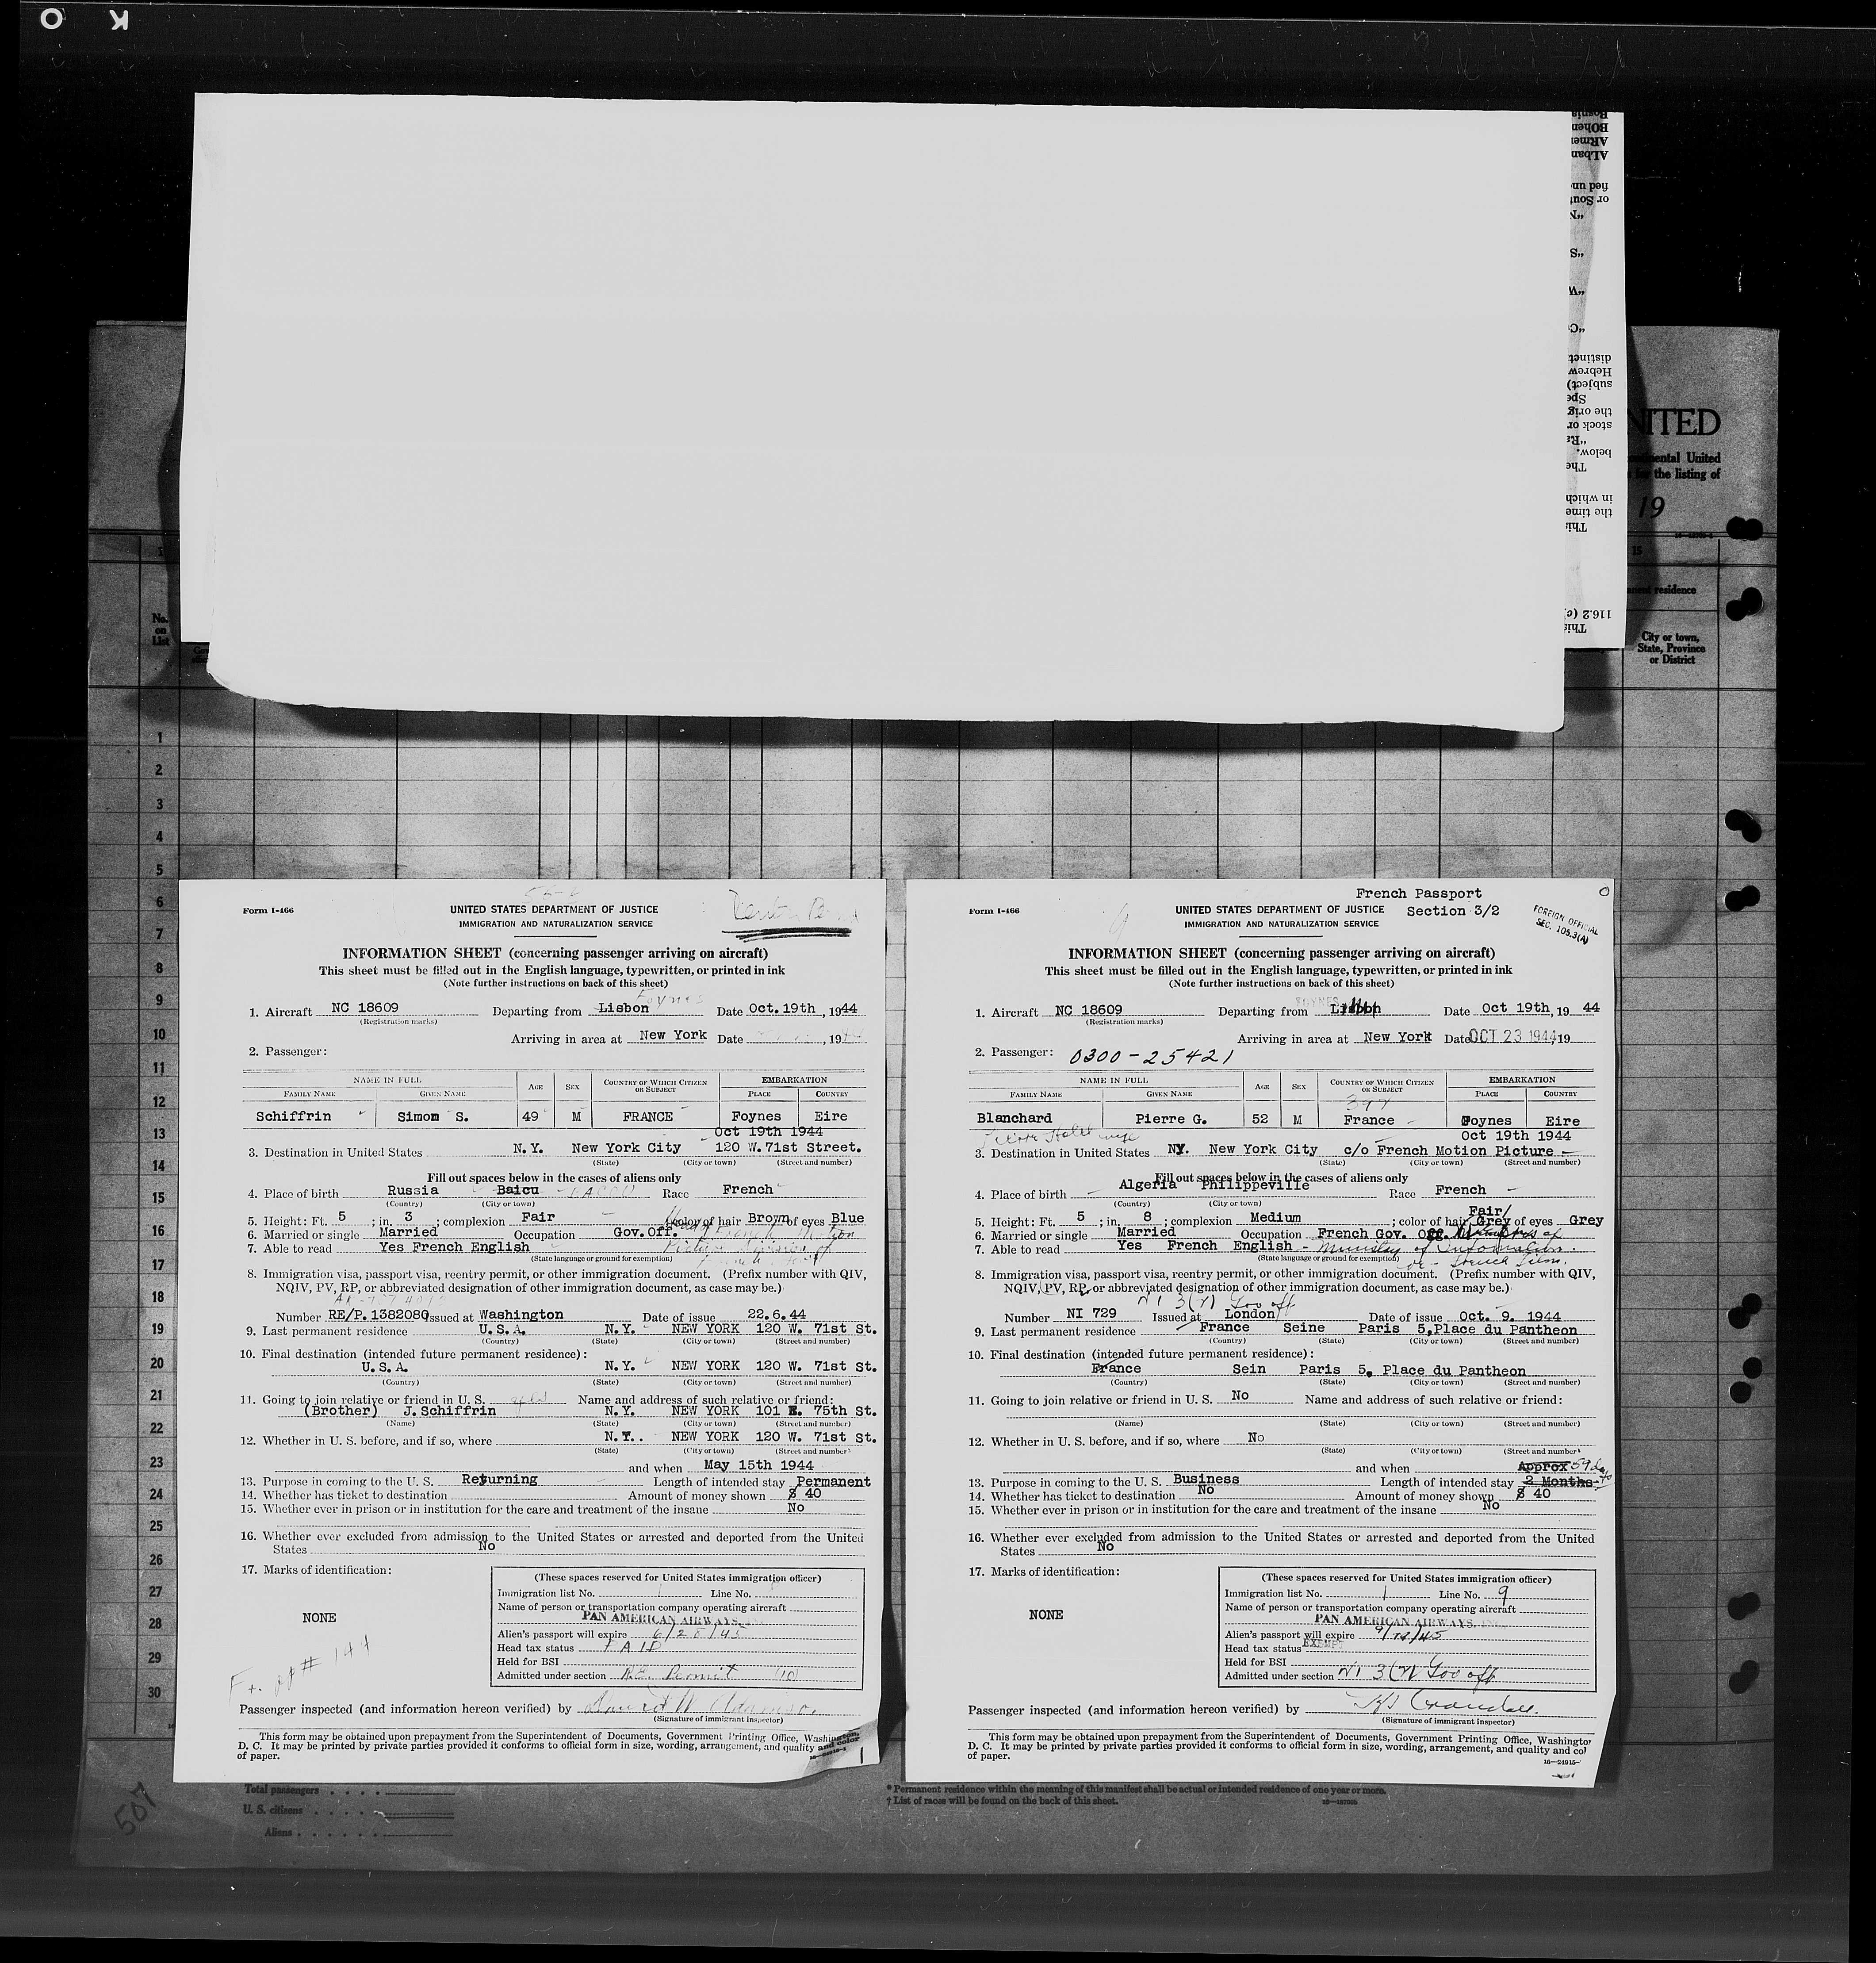 O K
Bosnia
BOhen
ARmen
ALban
fied un
or Sout
"N
"S
"W
"C
distinct
Hebrew
subject)
Spe
the orig
stock or
"Ra
below.
The
in which
the time
This
116.2 (c)
This
NITED
ental United
for the listing of
19
15
residence
City or town,
State, Province
or District
No.
on
List
1
2
3
4
5
6
7
8
9
10
11
12
13
14
15
16
17
18
19
20
21
22
23
24
25
26
27
28
29
30
Form I-466
UNITED STATES DEPARTMENT OF JUSTICE
IMMIGRATION AND NATURALIZATION SERVICE
INFORMATION SHEET (concerning passenger arriving on aircraft)
This sheet must be filled out in the English language, typewritten, or printed in ink
(Note further instructions on back of this sheet)
Foynes
1. Aircraft NC 18609 Departing from Lisbon Date Oct. 19th, 1944
(Registration marks)
Arriving in area at New York Date , 19
2. Passenger:
NAME IN FULL AGE SEX COUNTRY OF WHICH CITIZEN OR SUBJECT EMBARKATION
FAMILY NAME GIVEN NAME PLACE COUNTRY
Schiffrin Simon S. 49 M FRANCE Foynes Eire
Oct 19th 1944
3. Destination in United States N.Y. New York City 120 W.71st Street.
(State) (City or town) (Street and number)
Fill out spaces below in the cases of aliens only
4. Place of birth Russia Baicu Race French
(Country) (City or town)
5. Height: Ft. 5 ; in. 3 ; complexion Fair ; color of hair Brown of eyes Blue
6. Married or single Married Occupation Gov. Off.
7. Able to read Yes French English
(State language or ground for exemption)
8. Immigration visa, passport visa, reentry permit, or other immigration document. (Prefix number with QIV,
NQIV, PV, RP, or abbreviated designation of other immigration document, as case may be.)
Number RE/P. 1382080 Issued at Washington Date of issue 22.6.44
9. Last permanent residence U.S.A. N.Y. NEW YORK 120 W. 71st St.
(Country) (State) (City or town) (Street and number)
10. Final destination (intended future permanent residence):
U.S.A. N.Y. NEW YORK 120 W. 71st St.
(Country) (State) (City or town) (Street and number)
11. Going to join relative or friend in U. S. Name and address of such relative or friend:
(Brother) J. Schiffrin N.Y. NEW YORK 101 75th St.
(Name) (State) (City or town) (Street and number)
12. Whether in U. S. before, and if so, where N.Y.. NEW YORK 120 W. 71st St.
(State) (City or town) (Street and number)
and when May 15th 1944
13. Purpose in coming to the U. S. Returning Length of intended stay Permanent
14. Whether has ticket to destination Amount of money shown $ 40
15. Whether ever in prison or in institution for the care and treatment of the insane No
16. Whether ever excluded from admission to the United States or arrested and deported from the United
States No
17. Marks of identification:
NONE
(These spaces reserved for United States immigration officer)
Immigration list No. 1 Line No.
Name of person or transportation company operating aircraft
PAN AMERICAN AIRWAYS, INC.
Alien's passport will expire 6/28/45
Head tax status PAID
Held for BSI
Admitted under section R.E. Permit (10)
Passenger inspected (and information hereon verified) by
(Signature of immigrant inspector)
This form may be obtained upon prepayment from the Superintendent of Documents, Government Printing Office, Washington,
D. C. It may be printed by private parties provided it conforms to official form in size, wording, arrangement, and quality and color
of paper.
French Passport
Section 3/2
FOREIGN OFFICIAL
SEC. 105.3(A)
Form I-466
UNITED STATES DEPARTMENT OF JUSTICE
IMMIGRATION AND NATURALIZATION SERVICE
INFORMATION SHEET (concerning passenger arriving on aircraft)
This sheet must be filled out in the English language, typewritten, or printed in ink
(Note further instructions on back of this sheet)
FOYNES
1. Aircraft NC 18609 Departing from Lisbon Date Oct 19th, 19 44
(Registration marks)
Arriving in area at New York Date OCT 23 1944, 19
2. Passenger: 0300-25421
NAME IN FULL AGE SEX COUNTRY OF WHICH CITIZEN OR SUBJECT EMBARKATION
FAMILY NAME GIVEN NAME PLACE COUNTRY
Blanchard Pierre G. 52 M France Foynes Eire
Oct 19th 1944
3. Destination in United States NY. New York City c/o French Motion Picture
(State) (City or town) (Street and number)
Fill out spaces below in the cases of aliens only
4. Place of birth Algeria Philippeville Race French
(Country) (City or town)
5. Height: Ft. 5 ; in. 8 ; complexion Medium ; color of hair Fair/ Grey of eyes Grey
6. Married or single Married Occupation French Gov. Off.
7. Able to read Yes French English - Ministry of Information.
(State language or ground for exemption)
8. Immigration visa, passport visa, reentry permit, or other immigration document. (Prefix number with QIV,
NQIV, PV, RP, or abbreviated designation of other immigration document, as case may be.)
NI 3(7) Gov off
Number NI 729 Issued at London Date of issue Oct. 9. 1944
9. Last permanent residence France Seine Paris 5, Place du Pantheon
(Country) (State) (City or town) (Street and number)
10. Final destination (intended future permanent residence):
France Sein Paris 5, Place du Pantheon
(Country) (State) (City or town) (Street and number)
11. Going to join relative or friend in U. S. No Name and address of such relative or friend:
(Name) (State) (City or town) (Street and number)
12. Whether in U. S. before, and if so, where No
(State) (City or town) (Street and number)
and when Approx 59 days
13. Purpose in coming to the U. S. Business Length of intended stay 2 Months
14. Whether has ticket to destination No Amount of money shown $ 40
15. Whether ever in prison or in institution for the care and treatment of the insane No
16. Whether ever excluded from admission to the United States or arrested and deported from the United
States No
17. Marks of identification:
NONE
(These spaces reserved for United States immigration officer)
Immigration list No. 1 Line No. 9
Name of person or transportation company operating aircraft
PAN AMERICAN AIRWAYS, INC.
Alien's passport will expire
Head tax status EXEMPT
Held for BSI
Admitted under section NI 3(7) Gov off
Passenger inspected (and information hereon verified) by
(Signature of immigrant inspector)
This form may be obtained upon prepayment from the Superintendent of Documents, Government Printing Office, Washington
D. C. It may be printed by private parties provided it conforms to official form in size, wording, arrangement, and quality and col
of paper.
16-24915-
Total passengers
U. S. citizens
Aliens
507
* Permanent residence within the meaning of this manifest shall be actual or intended residence of one year or more.
† List of races will be found on the back of this sheet.